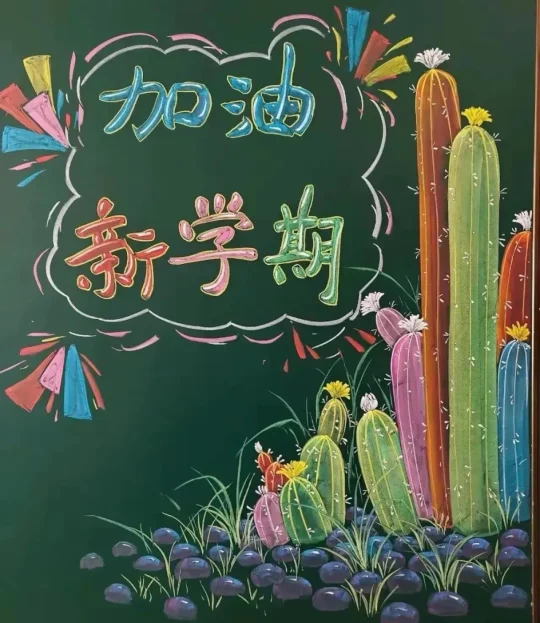 加油
新学期